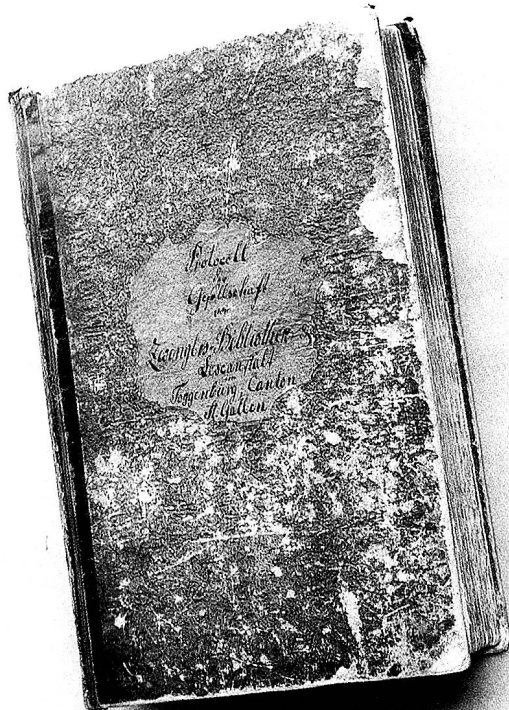 Protocoll
der
Gesellschaft
von
Zwinglis-Bibliothek &
Leseanstalt
im
Toggenburg Canton
St. Gallen